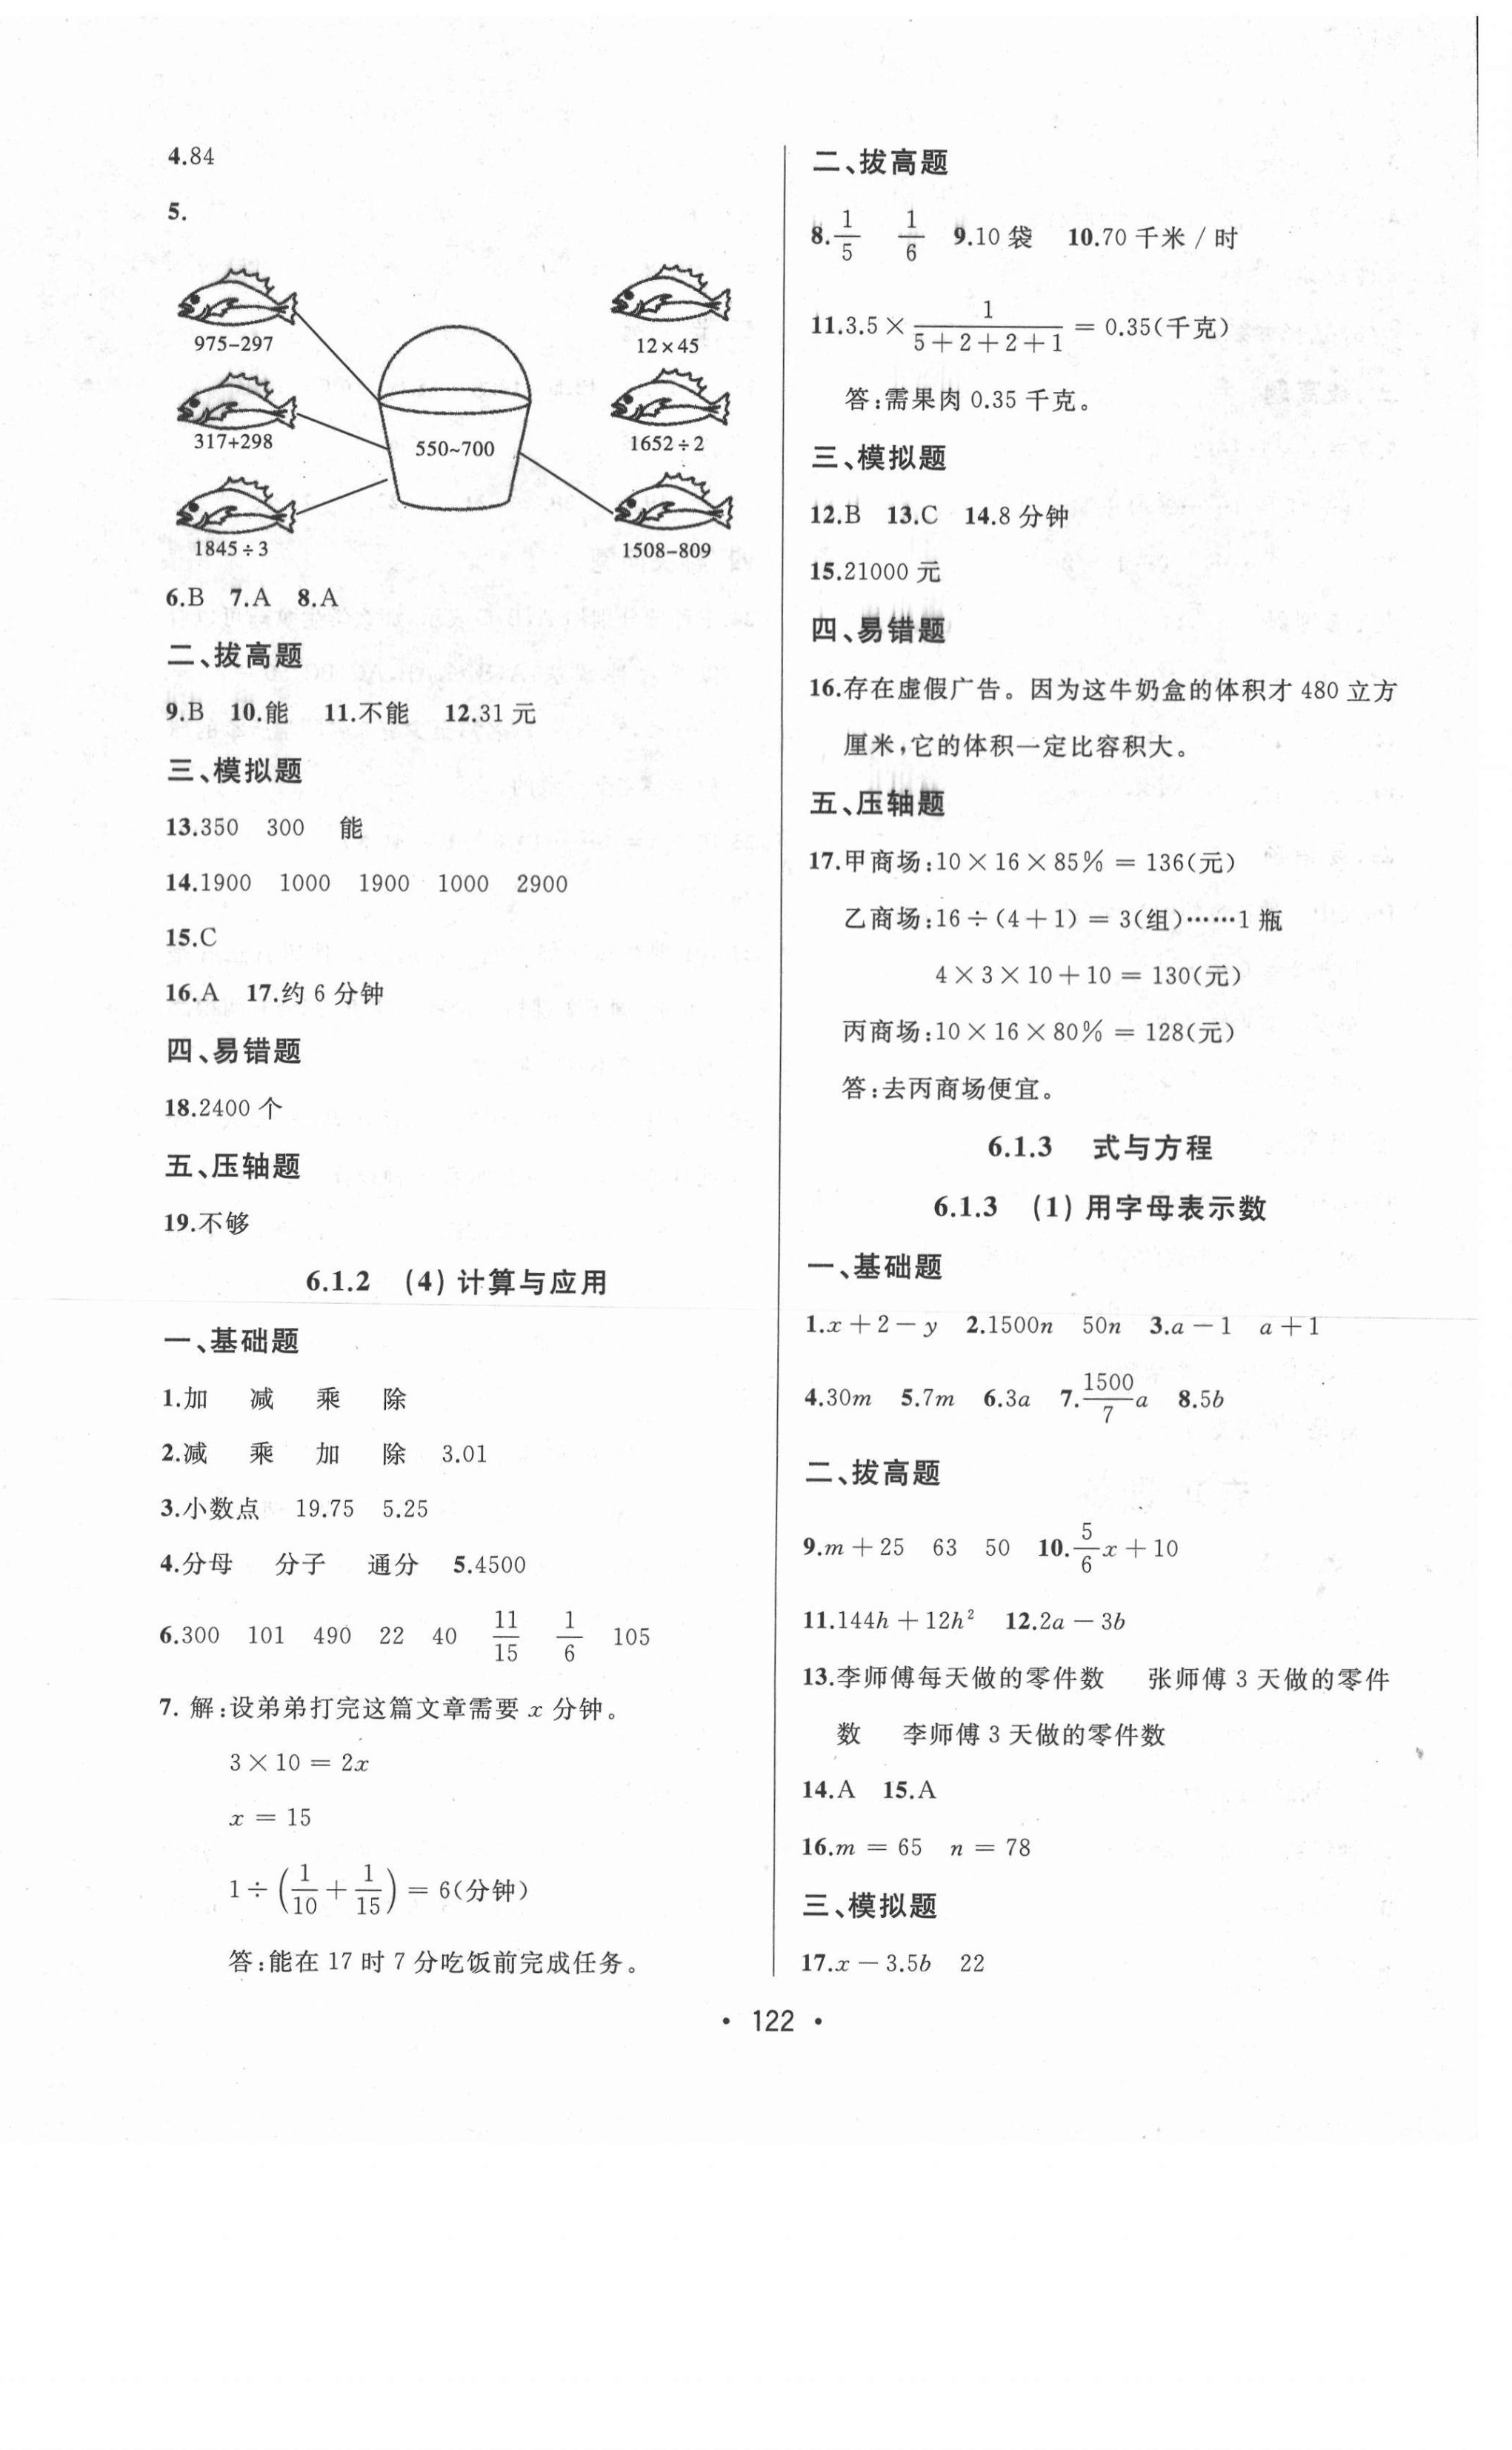 4.84
5.
975−297
12×45
317+298
550~700
1652÷2
1845÷3
1508−809
6.B 7.A 8.A
二、拔高题
9.B 10.能 11.不能 12.31元
三、模拟题
13.350 300 能
14.1900 1000 1900 1000 2900
15.C
16.A 17.约6分钟
四、易错题
18.2400个
五、压轴题
19.不够
6.1.2 (4)计算与应用
一、基础题
1.加 减 乘 除
2.减 乘 加 除 3.01
3.小数点 19.75 5.25
4.分母 分子 通分 5.4500
6.300 101 490 22 40 11/15 1/6 105
7. 解:设弟弟打完这篇文章需要x分钟。
3×10=2x
x=15
1÷(1/10+1/15)=6(分钟)
答:能在17时7分吃饭前完成任务。
二、拔高题
8.1/5 1/6 9.10袋 10.70千米/时
11.3.5×1/(5+2+2+1)=0.35(千克)
答:需果肉0.35千克。
三、模拟题
12.B 13.C 14.8分钟
15.21000元
四、易错题
16.存在虚假广告。因为这牛奶盒的体积才480立方
厘米,它的体积一定比容积大。
五、压轴题
17.甲商场:10×16×85%=136(元)
乙商场:16÷(4+1)=3(组)……1瓶
4×3×10+10=130(元)
丙商场:10×16×80%=128(元)
答:去丙商场便宜。
6.1.3 式与方程
6.1.3 (1)用字母表示数
一、基础题
1.x+2−y 2.1500n 50n 3.a−1 a+1
4.30m 5.7m 6.3a 7.1500/7a 8.5b
二、拔高题
9.m+25 63 50 10.5/6x+10
11.144h+12h² 12.2a−3b
13.李师傅每天做的零件数 张师傅3天做的零件
数 李师傅3天做的零件数
14.A 15.A
16.m=65 n=78
三、模拟题
17.x−3.5b 22
· 122 ·